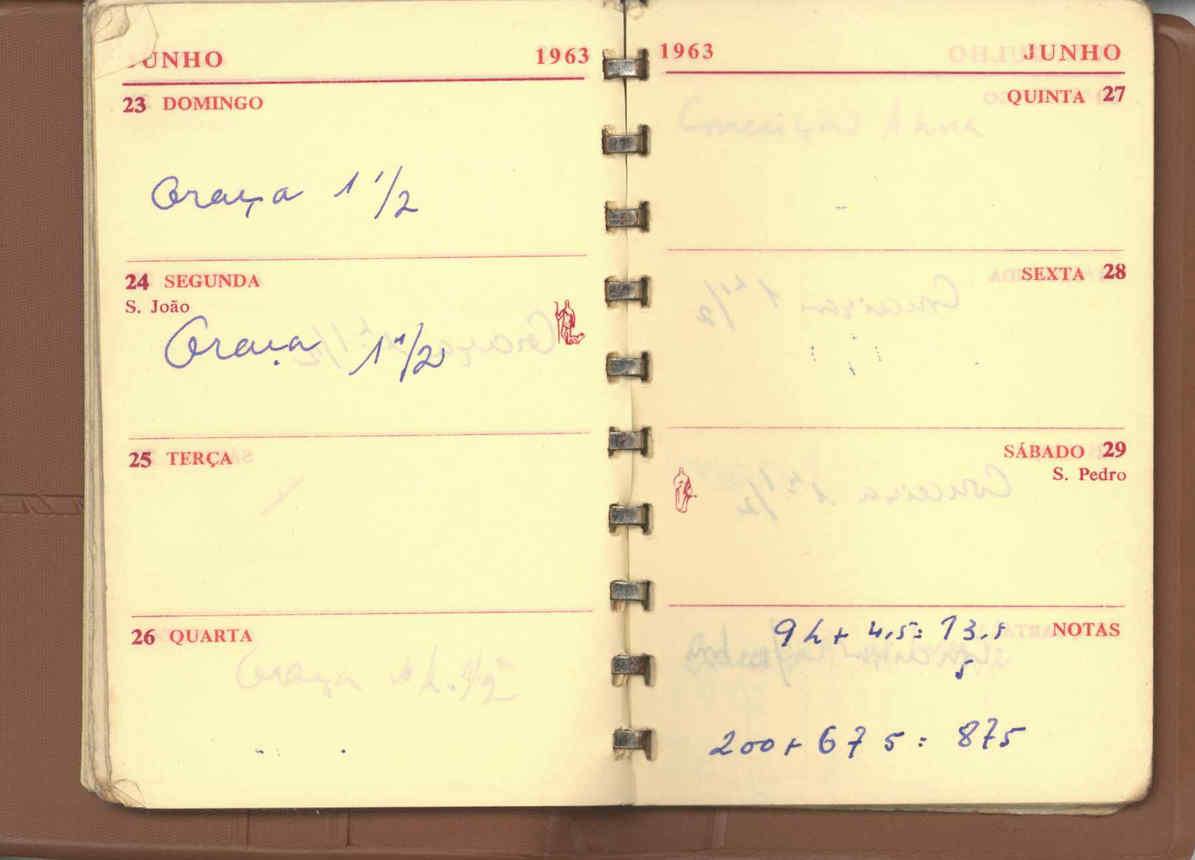 JUNHO 1963
23 DOMINGO
Graça 1 1/2
24 SEGUNDA
S. João
Graça 1 1/2
25 TERÇA
26 QUARTA
1963 JUNHO
QUINTA 27
SEXTA 28
SÁBADO 29
S. Pedro
NOTAS
9h + 4,5 = 13,5
5
200 + 675 = 875